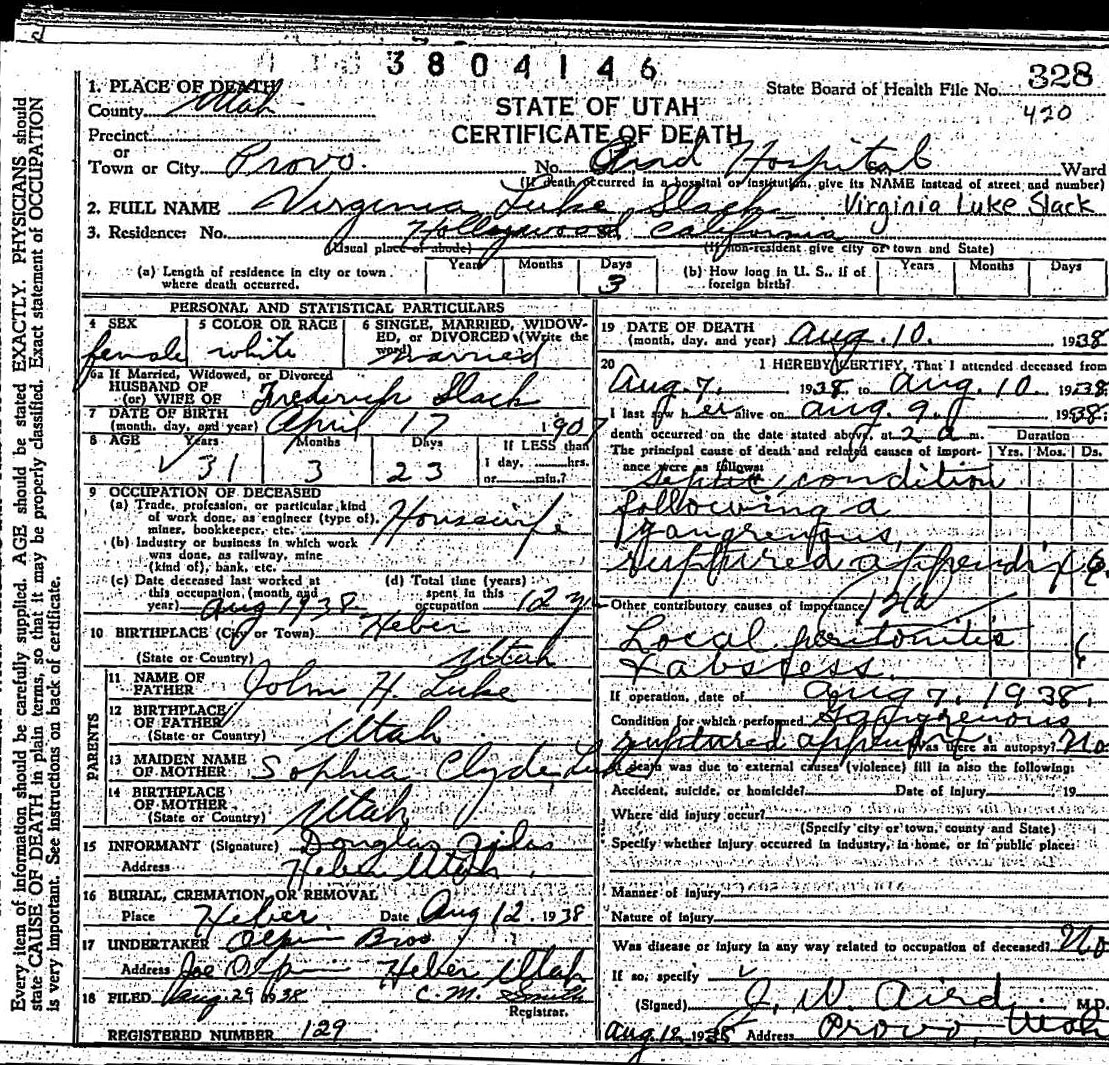 3804146
State Board of Health File No. 328
420
1. PLACE OF DEATH
County Utah
STATE OF UTAH
CERTIFICATE OF DEATH
Precinct
or
Town or City Provo. No. Aird Hospital Ward
(If death occurred in a hospital or institution, give its NAME instead of street and number)
2. FULL NAME Virginia Luke Slack Virginia Luke Slack
3. Residence: No. Hollywood California
(Usual place of abode) (If non-resident give city or town and State)
(a) Length of residence in city or town where death occurred. Years Months Days 3
(b) How long in U. S., if of foreign birth? Years Months Days
PERSONAL AND STATISTICAL PARTICULARS
4 SEX female
5 COLOR OR RACE white
6 SINGLE, MARRIED, WIDOWED, or DIVORCED (Write the word) married
6a If Married, Widowed, or Divorced
HUSBAND OF
(or) WIFE OF Frederick Slack
7 DATE OF BIRTH
(month, day, and year) April 17 1907
8 AGE Years Months Days If LESS than
31 3 23 1 day, hrs.
or min.?
9 OCCUPATION OF DECEASED
(a) Trade, profession, or particular kind
of work done, as engineer (type of), Housewife
miner, bookkeeper, etc.
(b) Industry or business in which work
was done, as railway, mine
(kind of), bank, etc.
(c) Date deceased last worked at
this occupation (month and
year) Aug 1938
(d) Total time (years)
spent in this
occupation 12 y
10 BIRTHPLACE (City or Town) Heber
(State or Country) Utah
PARENTS
11 NAME OF
FATHER John H. Luke
12 BIRTHPLACE
OF FATHER
(State or Country) Utah
13 MAIDEN NAME
OF MOTHER Sophia Clyde Luke
14 BIRTHPLACE
OF MOTHER
(State or Country) Utah
15 INFORMANT (Signature) Douglas Giles
Address Heber Utah
16 BURIAL, CREMATION, OR REMOVAL
Place Heber Date Aug 12 1938
17 UNDERTAKER Olpin Bros
Address Joe Olpin Heber Utah
18 FILED Aug. 29 1938 C. M. Smith
Registrar.
REGISTERED NUMBER 129
19 DATE OF DEATH
(month, day, and year) Aug. 10. 1938
20 I HEREBY CERTIFY, That I attended deceased from
Aug 7. 1938 to Aug. 10 1938
I last saw her alive on Aug. 9. 1938
death occurred on the date stated above, at 2 a m.
Duration
The principal cause of death and related causes of importance were as follows: Yrs. Mos. Ds.
Septic condition
following a
gangrenous,
ruptured appendix 6
Other contributory causes of importance
Local peritonitis
& abscess. 6
If operation, date of Aug 7, 1938.
Condition for which performed Gangrenous
ruptured appendix. Was there an autopsy? No
If death was due to external causes (violence) fill in also the following:
Accident, suicide, or homicide? Date of injury 19
Where did injury occur?
(Specify city or town, county and State)
Specify whether injury occurred in industry, in home, or in public place:
Manner of injury
Nature of injury
Was disease or injury in any way related to occupation of deceased? No
If so, specify
(Signed) J. W. Aird M.D.
Aug. 12 1938 Address Provo, Utah
Every item of information should be carefully supplied. AGE should be stated EXACTLY. PHYSICIANS should
state CAUSE OF DEATH in plain terms, so that it may be properly classified. Exact statement of OCCUPATION
is very important. See instructions on back of certificate.